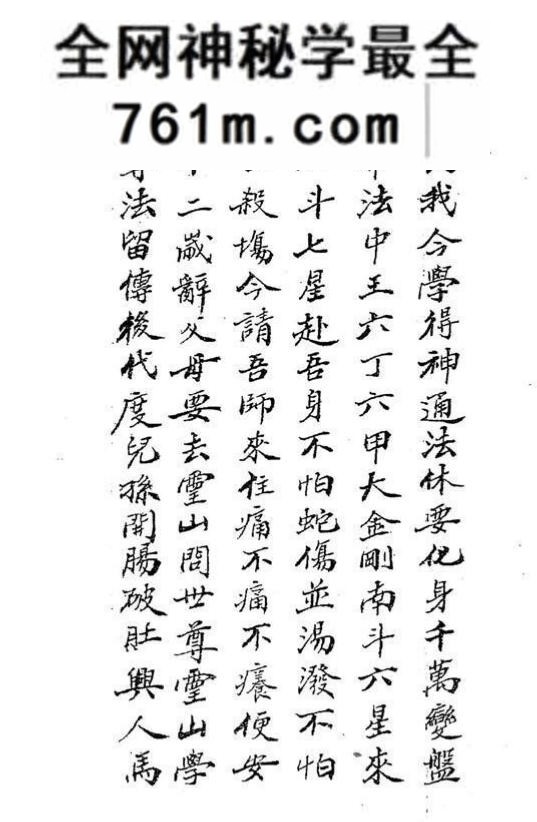 全网神秘学最全
761m.com
我今學得神通法休要化身千萬變盤
法中王六丁六甲大金剛南斗六星來
斗七星赴吾身不怕蛇傷並湯潑不怕
殺塲今請吾師來住痛不痛不癢便安
二歲辭父母要去靈山問世尊靈山學
法留傳後代度兒孫開腸破肚興人馬